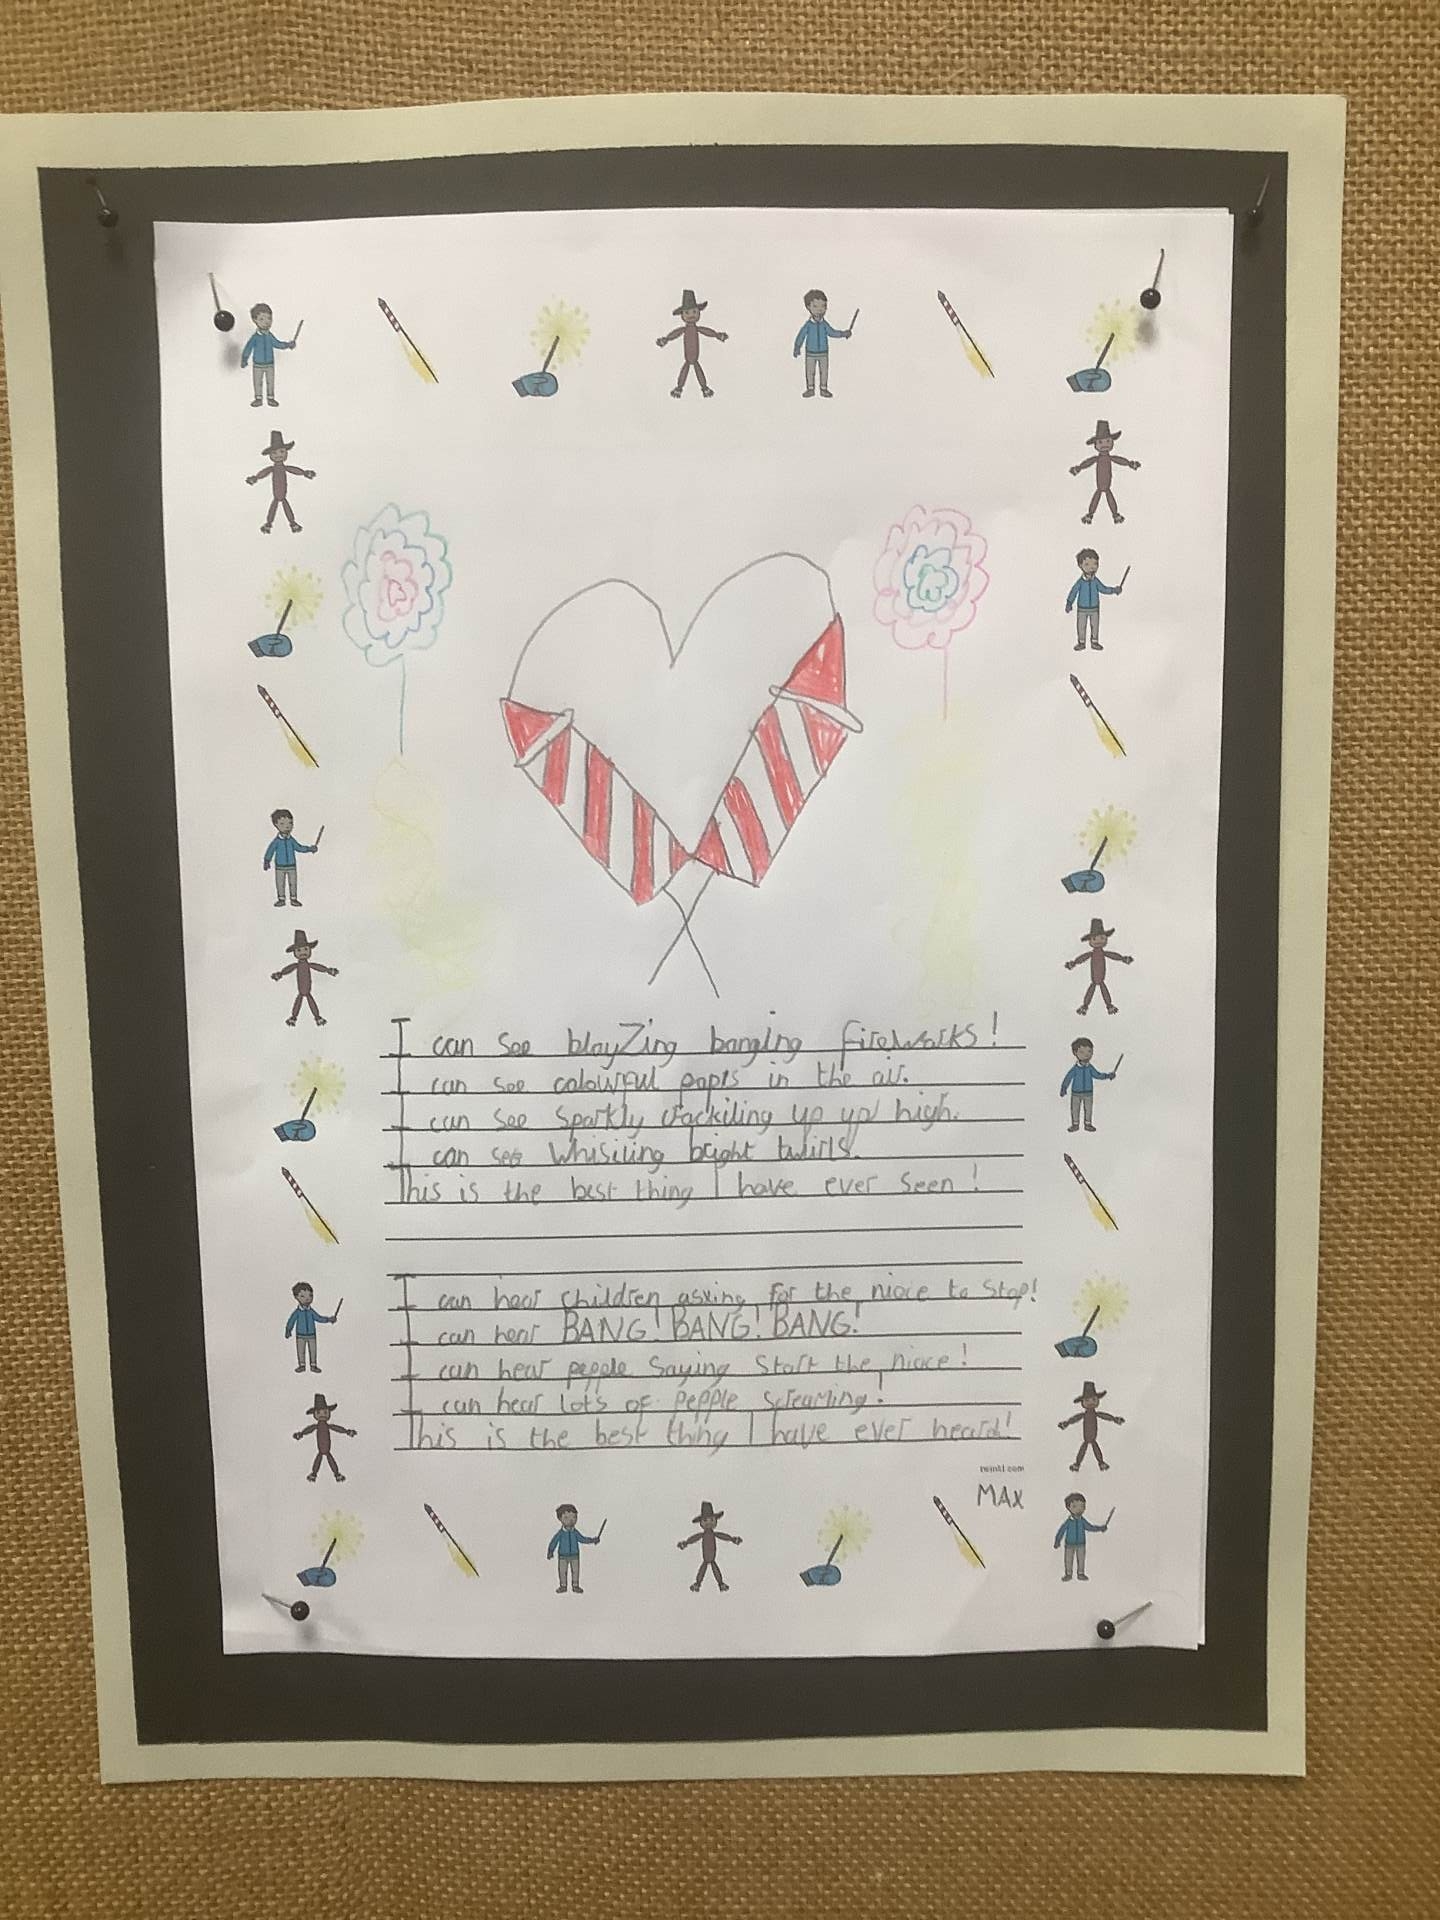 I can see blayZing banging fireworks!
I can see colourful popis in the air.
I can see sparkly crackiling up up high.
I can see whisiling bright twirls.
This is the best thing I have ever seen!
I can hear children asking for the nioce to stop!
I can hear BANG! BANG! BANG!
I can hear pepple saying start the nioce!
I can hear lots of pepple screaming!
This is the best thing I have ever heard!
twinkl.com
MAX